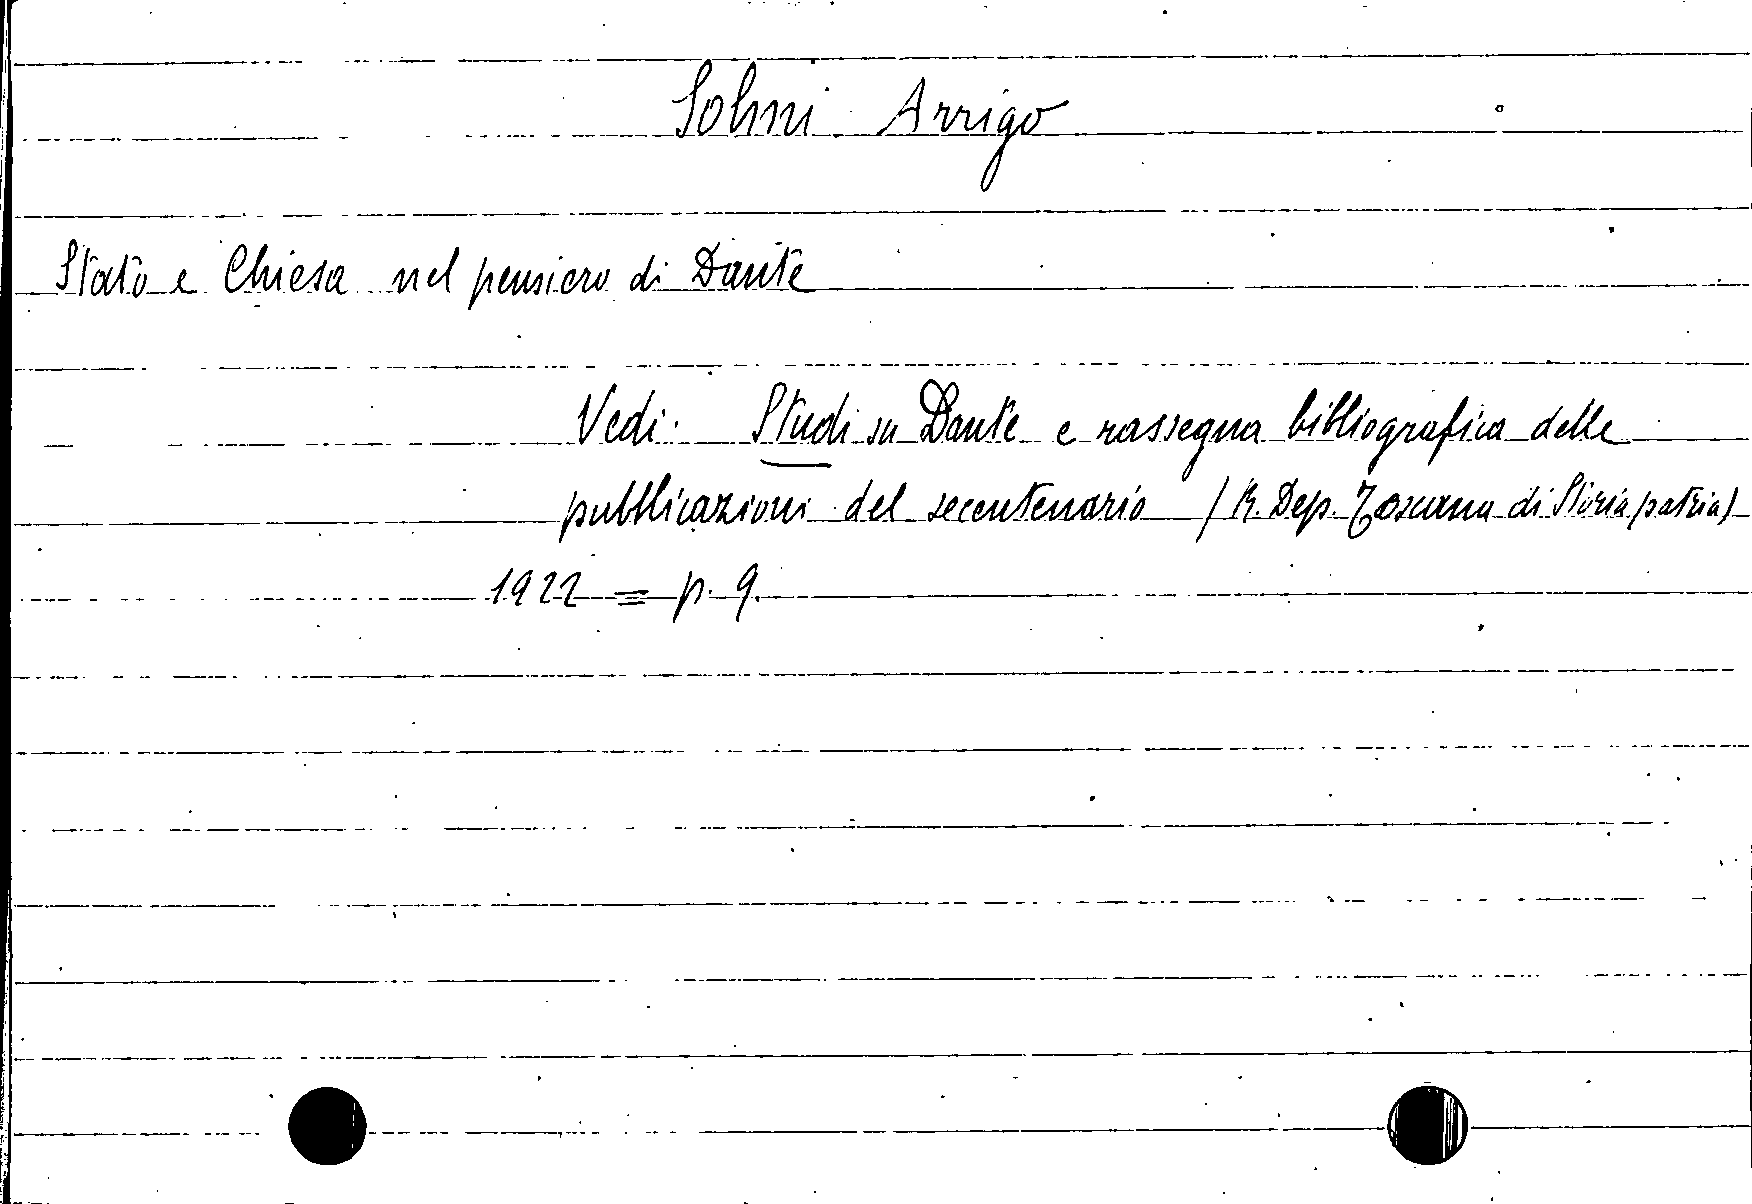 Solmi Arrigo
Stato e Chiesa nel pensiero di Dante
Vedi. Studi su Dante e rassegna bibliografica delle
pubblicazioni del secentenario (R. Dep. Toscana di Storia patria)
1922 = p. 9.